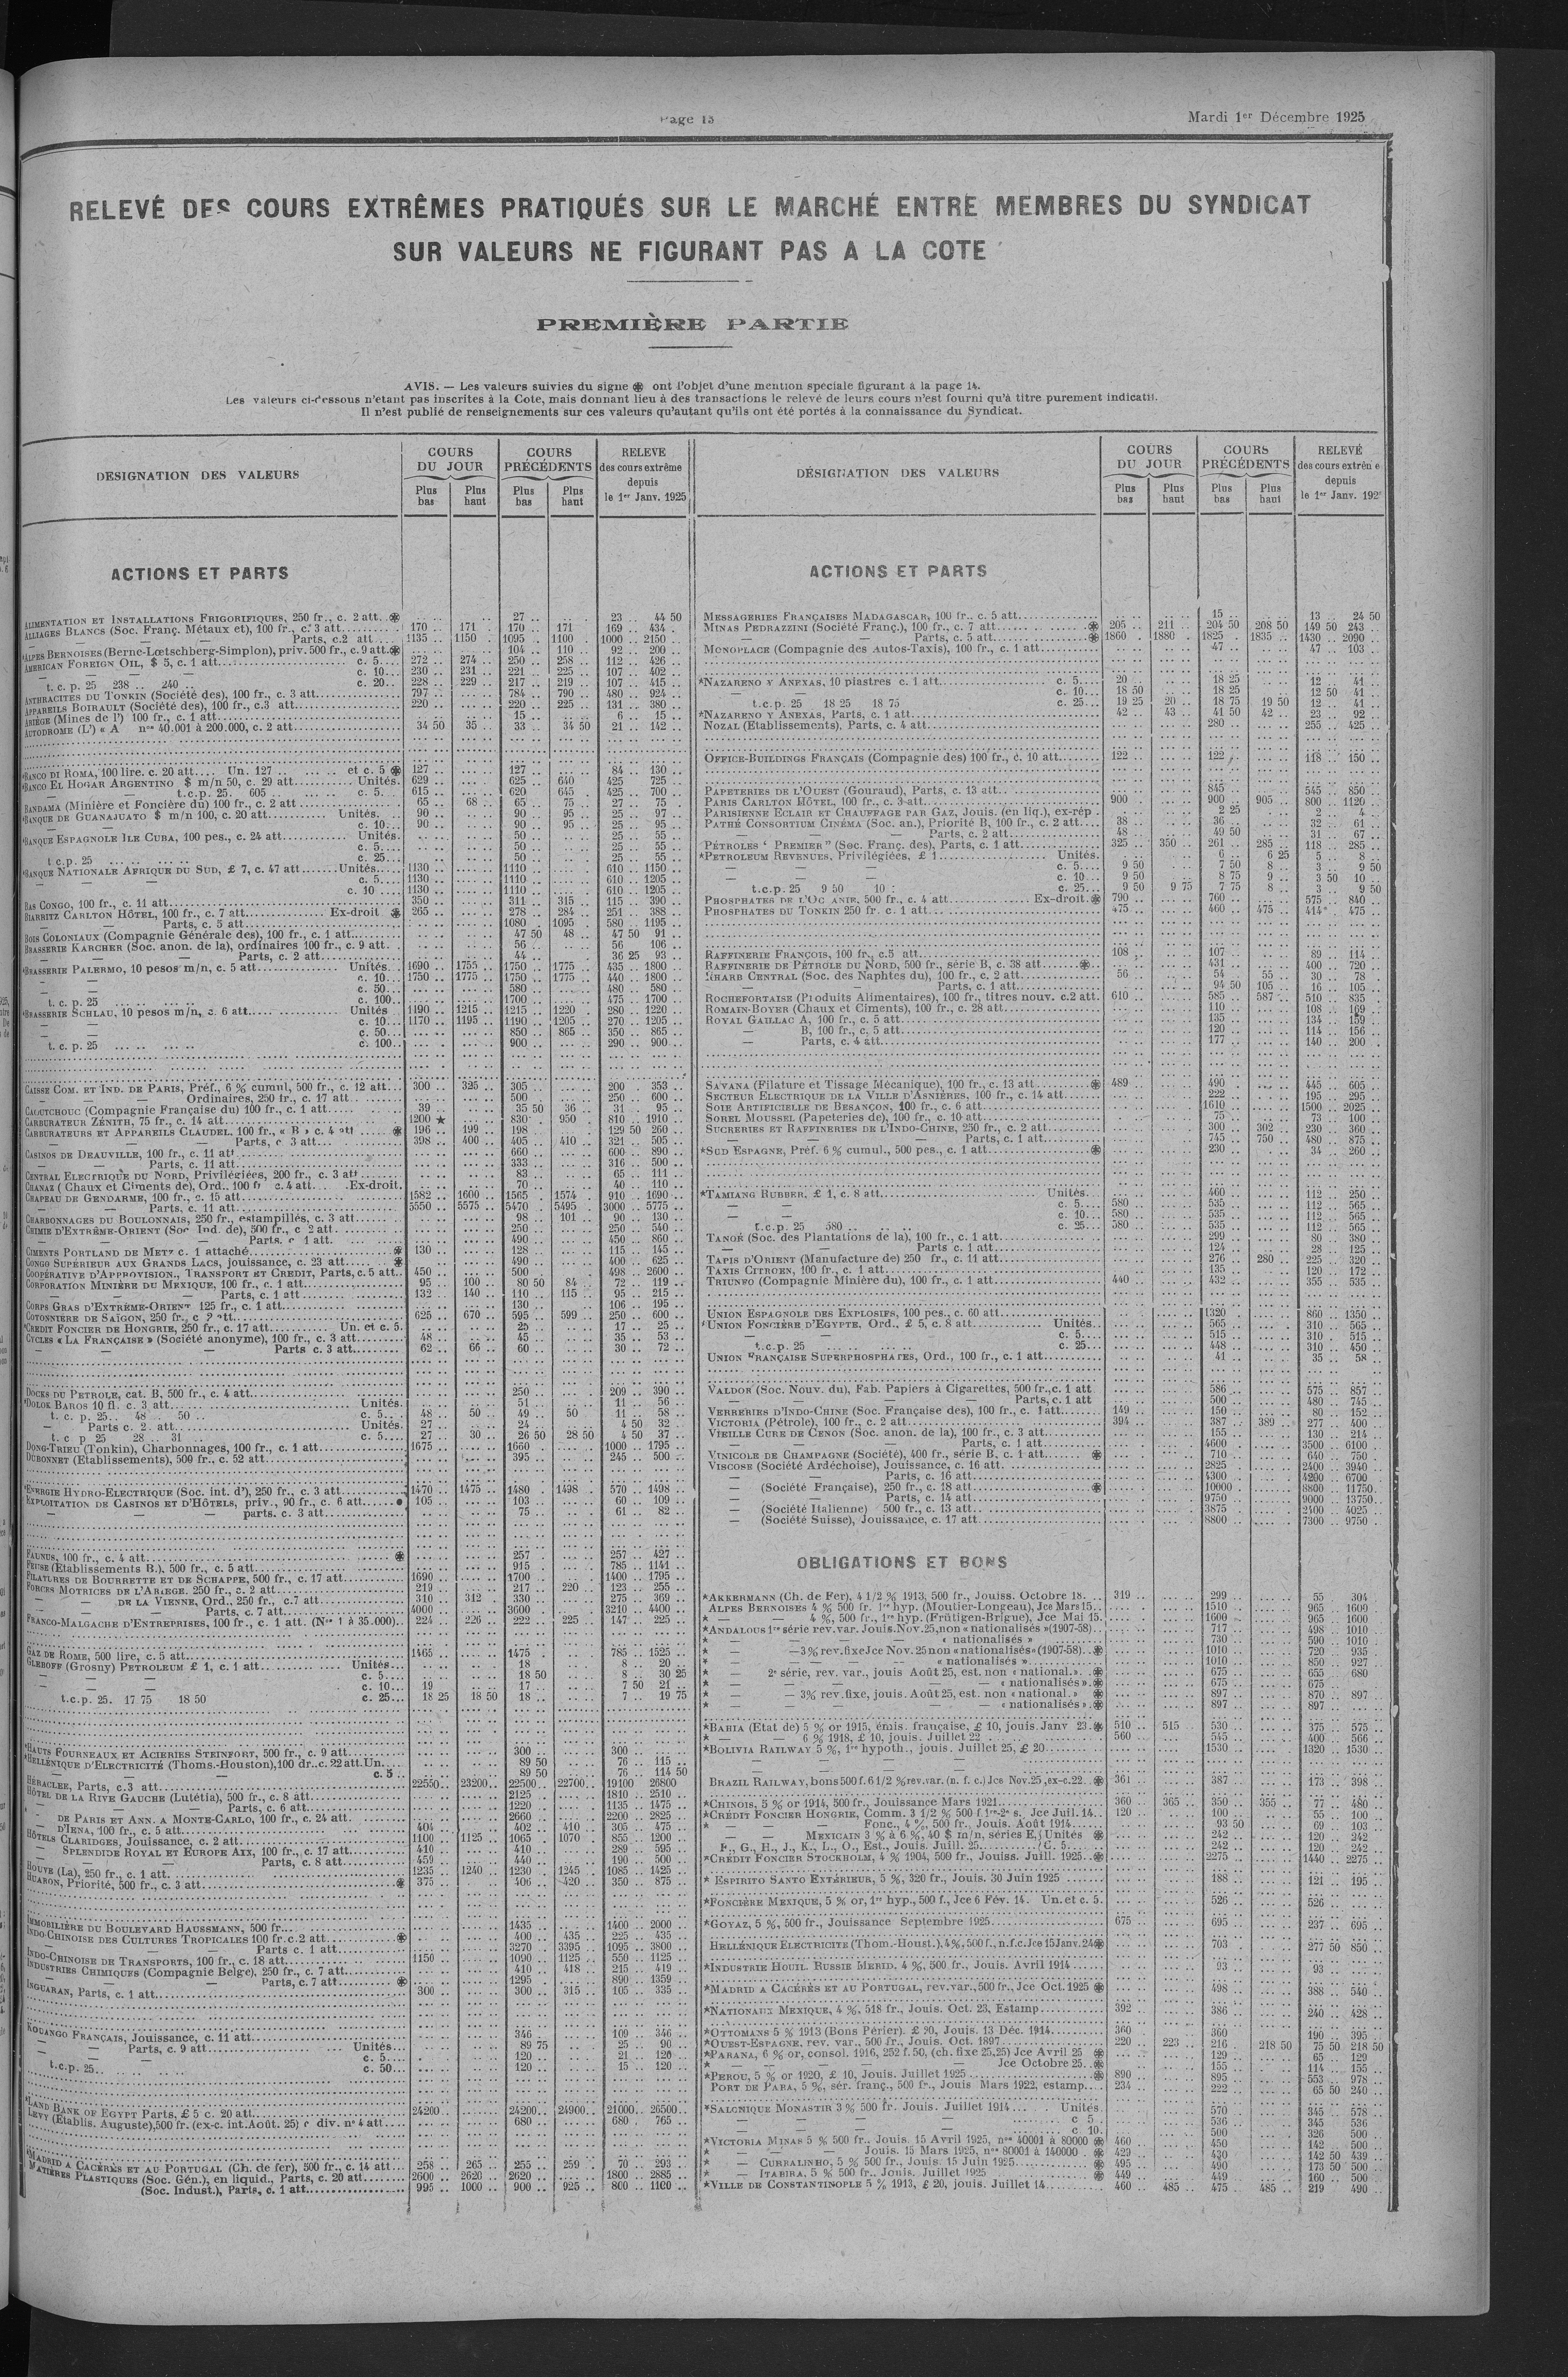 Page 13
Mardi 1er Décembre 1925
RELEVÉ DES COURS EXTRÊMES PRATIQUÉS SUR LE MARCHÉ ENTRE MEMBRES DU SYNDICAT
SUR VALEURS NE FIGURANT PAS A LA COTE
PREMIÈRE PARTIE
AVIS. — Les valeurs suivies du signe ⊛ ont l'objet d'une mention spéciale figurant à la page 14.
Les valeurs ci-dessous n'étant pas inscrites à la Cote, mais donnant lieu à des transactions le relevé de leurs cours n'est fourni qu'à titre purement indicatif.
Il n'est publié de renseignements sur ces valeurs qu'autant qu'ils ont été portés à la connaissance du Syndicat.
DESIGNATION DES VALEURS
COURS DU JOUR
Plus bas
Plus haut
COURS PRÉCÉDENTS
Plus bas
Plus haut
RELEVE des cours extrême depuis le 1er Janv. 1925
ACTIONS ET PARTS
ALIMENTATION ET INSTALLATIONS FRIGORIFIQUES, 250 fr., c. 2 att. ⊛ 27 .. 23 44 50
ALLIAGES BLANCS (Soc. Franç. Métaux et), 100 fr., c. 3 att. 170 .. 171 .. 170 .. 171 .. 169 .. 434 ..
— — — Parts, c.2 att 1135 .. 1150 .. 1095 .. 1100 .. 1000 .. 2150 ..
*ALPES BERNOISES (Berne-Lœtschberg-Simplon), priv. 500 fr., c. 9 att. ⊛ 104 .. 110 .. 92 .. 200 ..
AMERICAN FOREIGN OIL, $ 5, c. 1 att. c. 5... 272 .. 274 .. 250 .. 258 .. 112 .. 426 ..
— — — c. 10... 230 .. 231 .. 221 .. 225 .. 107 .. 402 ..
t. c. p. 25 238 .. 240 .. c. 20... 228 .. 229 .. 217 .. 219 .. 107 .. 415 ..
ANTHRACITES DU TONKIN (Société des), 100 fr., c. 3 att. 797 .. 784 .. 790 .. 480 .. 924 ..
APPAREILS BOIRAULT (Société des), 100 fr., c.3 att. 220 .. 220 .. 225 .. 131 .. 380 ..
ARIÈGE (Mines de l') 100 fr., c. 1 att. 15 .. 6 .. 15 ..
AUTODROME (L') « A nos 40.001 à 200.000, c. 2 att. 34 50 35 .. 33 .. 34 50 21 .. 142 ..
*BANCO DI ROMA, 100 lire. c. 20 att.... Un. 127 .. et c. 5 ⊛ 127 .. 127 .. 84 .. 130 ..
*BANCO EL HOGAR ARGENTINO $ m/n 50, c. 29 att. Unités. 629 .. 625 .. 640 .. 425 .. 725 ..
— t.c.p. 25. 605 .. c. 5... 615 .. 620 .. 645 .. 425 .. 700 ..
BANDAMA (Minière et Foncière du) 100 fr., c. 2 att 65 .. 68 .. 65 .. 75 .. 27 .. 75 ..
*BANQUE DE GUANAJUATO $ m/n 100, c. 20 att. Unités. 90 .. 90 .. 95 .. 25 .. 97 ..
— — c. 10... 90 .. 90 .. 95 .. 25 .. 95 ..
*BANQUE ESPAGNOLE ILE CUBA, 100 pes., c. 24 att. Unités. 50 .. 25 .. 55 ..
c. 5... 50 .. 25 .. 55 ..
t.c.p. 25 c. 25... 50 .. 25 .. 55 ..
*BANQUE NATIONALE AFRIQUE DU SUD, £ 7, c. 47 att. Unités. 1130 .. 1110 .. 610 .. 1150 ..
— — — c. 5... 1130 .. 1110 .. 610 .. 1205 ..
c. 10 ... 1130 .. 1110 .. 610 .. 1205 ..
BAS CONGO, 100 fr., c. 11 att. 350 .. 311 .. 315 .. 115 .. 390 ..
BIARRITZ CARLTON HÔTEL, 100 fr., c. 7 att. Ex-droit ⊛ 265 .. 278 .. 284 .. 251 .. 388 ..
— — Parts, c. 5 att. 1080 .. 1095 .. 580 .. 1195 ..
BOIS COLONIAUX (Compagnie Générale des), 100 fr., c. 1 att. 47 50 48 .. 47 50 91 ..
BRASSERIE KARCHER (Soc. anon. de la), ordinaires 100 fr., c. 9 att. 56 .. 56 106 ..
— — Parts, c. 2 att. 44 .. 36 25 93 ..
*BRASSERIE PALERMO, 10 pesos m/n, c. 5 att. Unités. 1690 .. 1755 .. 1750 .. 1775 .. 435 .. 1800 ..
— — c. 10... 1750 .. 1775 .. 1750 .. 1775 .. 440 .. 1800 ..
— — c. 50... 580 .. 480 .. 580 ..
t. c. p. 25 c. 100.. 1700 .. 475 .. 1700 ..
*BRASSERIE SCHLAU, 10 pesos m/n, c. 6 att. Unités 1190 .. 1215 .. 1215 .. 1220 .. 280 .. 1220 ..
— — c. 10... 1170 .. 1195 .. 1190 .. 1205 .. 270 .. 1205 ..
— — c. 50... 850 .. 865 .. 350 .. 865 ..
t. c. p. 25 c. 100.. 900 .. 290 .. 900 ..
CAISSE COM. ET IND. DE PARIS, Préf., 6 % cumul, 500 fr., c. 12 att. 300 .. 325 .. 305 .. 200 .. 353 ..
— — — Ordinaires, 250 fr., c. 17 att. 500 .. 250 .. 600 ..
CAOUTCHOUC (Compagnie Française du) 100 fr., c. 1 att. 39 .. 35 50 36 .. 31 .. 95 ..
CARBURATEUR ZÉNITH, 75 fr., c. 14 att. 1200 ★ 830 .. 950 .. 810 .. 1910 ..
CARBURATEURS ET APPAREILS CLAUDEL. 100 fr., « B » c. 4 att ⊛ 196 .. 199 .. 198 .. 129 50 260 ..
— — — Parts, c. 3 att. 398 .. 400 .. 405 .. 410 .. 321 .. 505 ..
CASINOS DE DEAUVILLE, 100 fr., c. 11 att 660 .. 600 .. 890 ..
— Parts, c. 11 att. 333 .. 316 .. 500 ..
CENTRAL ELECTRIQUE DU NORD, Privilégiées, 200 fr., c. 3 att 83 .. 65 .. 111 ..
CHANAZ (Chaux et Ciments de), Ord., 100 fr c. 4 att. Ex-droit. 70 .. 40 .. 110 ..
CHAPEAU DE GENDARME, 100 fr., c. 15 att 1582 .. 1600 .. 1565 .. 1574 .. 910 .. 1690 ..
— — Parts, c. 11 att. 5550 .. 5575 .. 5470 .. 5495 .. 3000 .. 5775 ..
CHARBONNAGES DU BOULONNAIS, 250 fr., estampillés, c. 3 att. 98 .. 101 .. 90 .. 130 ..
CHIMIE D'EXTRÊME-ORIENT (Soc Ind. de), 500 fr., c 2 att. 250 .. 250 .. 540 ..
— — — Parts, c 1 att. 490 .. 450 .. 860 ..
CIMENTS PORTLAND DE METZ c. 1 attaché ⊛ 130 .. 128 .. 115 .. 145 ..
CONGO SUPÉRIEUR AUX GRANDS LACS, jouissance, c. 23 att. ⊛ 490 .. 400 .. 625 ..
COOPÉRATIVE D'APPROVISION., TRANSPORT ET CREDIT, Parts, c. 5 att. 450 .. 500 .. 498 .. 2600 ..
CORPORATION MINIÈRE DU MEXIQUE, 100 fr., c. 1 att. 95 .. 100 .. 80 50 84 .. 72 .. 119 ..
— — — Parts, c. 1 att 132 .. 140 .. 110 .. 115 .. 95 .. 215 ..
CORPS GRAS D'EXTRÊME-ORIENT 125 fr., c. 1 att. 130 .. 106 .. 195 ..
COTONNIÈRE DE SAÏGON, 250 fr., c 2 att. 625 .. 670 .. 595 .. 599 .. 250 .. 600 ..
*CREDIT FONCIER DE HONGRIE, 250 fr., c. 17 att. Un. et c. 5. 25 .. 17 .. 25 ..
CYCLES « LA FRANÇAISE » (Société anonyme), 100 fr., c. 3 att. 48 .. 45 .. 35 .. 53 ..
— — — Parts c. 3 att. 62 .. 66 .. 60 .. 30 .. 72 ..
DOCKS DU PETROLE, cat. B, 500 fr., c. 4 att. 250 .. 209 .. 390 ..
*DOLOK BAROS 10 fl. c. 3 att. Unités. 51 .. 11 .. 56 ..
t. c. p. 25.. 48 .. 50 .. 48 .. 50 .. 49 .. 50 .. 11 .. 58 ..
— Parts c. 2. att. Unités. 27 .. 24 .. 4 50 32 ..
t. c p 25 28 .. 31 .. c. 5.... 27 .. 30 .. 26 50 28 50 4 50 37 ..
DONG-TRIEU (Tonkin), Charbonnages, 100 fr., c. 1 att. 1675 .. 1660 .. 1000 .. 1795 ..
DUBONNET (Etablissements), 500 fr., c. 52 att. 395 .. 245 .. 500 ..
*ENERGIE HYDRO-ELECTRIQUE (Soc. int. d'), 250 fr., c. 3 att. 1470 .. 1475 .. 1480 .. 1498 .. 570 .. 1498 ..
EXPLOITATION DE CASINOS ET D'HÔTELS, priv., 90 fr., c. 6 att. ● 105 .. 103 .. 60 .. 109 ..
— — — parts. c. 3 att. 75 .. 61 .. 82 ..
FAUNUS, 100 fr., c. 4 att. ⊛ 257 .. 257 .. 427 ..
(Etablissements B.), 500 fr., c. 5 att. 915 .. 785 .. 1141 ..
FILATURES DE BOURRETTE ET DE SCHAPPE, 500 fr., c. 17 att. 1690 .. 1700 .. 1400 .. 1795 ..
FORCES MOTRICES DE L'ARIEGE. 250 fr., c. 2 att. 219 .. 217 .. 220 .. 123 .. 255 ..
— DE LA VIENNE, Ord., 250 fr., c.7 att. 310 .. 312 .. 330 .. 275 .. 369 ..
— — Parts, c. 7 att. 4000 .. 3600 .. 3210 .. 4400 ..
FRANCO-MALGACHE D'ENTREPRISES, 100 fr., c. 1 att. (Nos 1 à 35.000).. 224 .. 226 .. 222 .. 225 .. 147 .. 225 ..
GAZ DE ROME, 500 lire, c. 5 att. 1465 .. 1475 .. 785 .. 1525 ..
GLEBOFF (Grosny) PETROLEUM £ 1, c. 1 att. Unités... 18 .. 8 .. 20 ..
— — c. 5.... 18 50 8 .. 30 25
— — c. 10... 19 .. 17 .. 7 50 21 ..
t.c.p. 25. 17 75 18 50 c. 25... 18 25 18 50 18 .. 7 .. 19 75
*HAUTS FOURNEAUX ET ACIERIES STEINFORT, 500 fr., c. 9 att. 300 .. 300 ..
*HELLÉNIQUE D'ELECTRICITÉ (Thoms.-Houston), 100 dr..c. 22 att. Un. 89 50 76 .. 115 ..
c. 5 .. 89 50 76 .. 114 50
HÉRACLEE, Parts, c.3 att. 22550.. 23200.. 22500 .. 22700.. 19100 26800
HÔTEL DE LA RIVE GAUCHE (Lutétia), 500 fr., c. 8 att. 2125 .. 1810 .. 2510 ..
— — Parts, c. 6 att. 1220 .. 1135 .. 1475 ..
— DE PARIS ET ANN. A MONTE-CARLO, 100 fr., c. 24 att. 2660 .. 2200 .. 2825 ..
— D'IENA, 100 fr., c. 5 att. 404 .. 402 .. 410 .. 305 .. 475 ..
HÔTELS CLARIDGES, Jouissance, c. 2 att. 1100 .. 1125 .. 1065 .. 1070 .. 855 .. 1200 ..
— SPLENDIDE ROYAL ET EUROPE AIX, 100 fr., c. 17 att. 410 .. 410 .. 289 .. 595 ..
— — Parts, c. 8 att. 459 .. 440 .. 190 .. 500 ..
HOUVE (La), 250 fr., c. 1 att. 1235 .. 1240 .. 1230 .. 1245 .. 1085 .. 1425 ..
HUARON, Priorité, 500 fr., c. 3 att. ⊛ 375 .. 406 .. 420 .. 350 .. 875 ..
IMMOBILIÈRE DU BOULEVARD HAUSSMANN, 500 fr. 1435 .. 1400 .. 2000 ..
INDO-CHINOISE DES CULTURES TROPICALES 100 fr.c.2 att. ⊛ 400 .. 435 .. 225 .. 435 ..
— — Parts c. 1 att. 3270 .. 3395 .. 1095 .. 3800 ..
INDO-CHINOISE DE TRANSPORTS, 100 fr., c. 18 att. 1150 .. 1090 .. 1125 .. 550 .. 1125 ..
INDUSTRIES CHIMIQUES (Compagnie Belge), 250 fr., c. 7 att. 410 .. 418 .. 215 .. 419 ..
— — Parts, c. 7 att. ⊛ 1295 .. 890 .. 1359 ..
INGUARAN, Parts, c. 1 att. 300 .. 300 .. 315 .. 105 .. 335 ..
KOUANGO FRANÇAIS, Jouissance, c. 11 att. 346 .. 109 .. 346 ..
— Parts, c. 9 att. Unités... 89 75 25 .. 90 ..
c. 5.... 120 .. 21 .. 120 ..
t.c.p. 25 c. 50... 120 .. 15 .. 120 ..
*LAND BANK OF EGYPT Parts, £ 5 c. 20 att. 24200.. 24200 .. 24900.. 21000.. 26500 ..
LEVY (Établis. Auguste), 500 fr. (ex-c. int. Août. 25) c div. n° 4 att. 680 .. 680 .. 765 ..
*MADRID A CACÉRÈS ET AU PORTUGAL (Ch. de fer), 500 fr., c. 14 att. 258 .. 265 .. 255 .. 259 .. 70 .. 293 ..
MATIÈRES PLASTIQUES (Soc. Gén.), en liquid., Parts, c. 20 att. 2600 .. 2620 .. 2620 .. 1800 .. 2885 ..
(Soc. Indust.), Parts, c. 1 att. 995 .. 1000 .. 900 .. 925 .. 800 .. 1100 ..
DÉSIGNATION DES VALEURS
COURS DU JOUR
Plus bas
Plus haut
COURS PRÉCÉDENTS
Plus bas
Plus haut
RELEVÉ des cours extrêm e depuis le 1er Janv. 192
ACTIONS ET PARTS
MESSAGERIES FRANÇAISES MADAGASCAR, 100 fr.. c. 5 att. 15 .. 13 .. 24 50
MINAS PEDRAZZINI (Société Franç.), 100 fr., c. 7 att. ⊛ 205 .. 211 .. 204 50 208 50 149 50 243 ..
— — Parts, c. 5 att. ⊛ 1860 .. 1880 .. 1825 .. 1835 .. 1430 .. 2090 ..
MONOPLACE (Compagnie des Autos-Taxis), 100 fr., c. 1 att. 47 .. 47 .. 103 ..
*NAZARENO Y ANEXAS, 10 piastres c. 1 att. c. 5... 20 .. 18 25 12 .. 41 ..
— — c. 10... 18 50 18 25 12 50 41 ..
t.c.p. 25 18 25 18 75 c. 25... 19 25 20 .. 18 75 19 50 12 .. 41 ..
*NAZARENO Y ANEXAS, Parts, c. 1 att. 42 .. 43 .. 41 50 42 .. 23 .. 92 ..
NOZAL (Etablissements), Parts, c. 4 att. 280 .. 255 .. 425 ..
OFFICE-BUILDINGS FRANÇAIS (Compagnie des) 100 fr., c. 10 att. 122 .. 122 .. 118 .. 150 ..
PAPETERIES DE L'OUEST (Gouraud), Parts, c. 13 att. 845 .. 545 .. 850 ..
PARIS CARLTON HÔTEL, 100 fr., c. 3 att. 900 .. 900 .. 905 .. 800 .. 1120 ..
PARISIENNE ECLAIR ET CHAUFFAGE PAR GAZ, Jouis. (en liq.), ex-rép. 2 25 2 .. 4 ..
PATHÉ CONSORTIUM CINÉMA (Soc. an.), Priorité B, 100 fr., c. 2 att. 38 .. 36 .. 32 .. 61 ..
— — — Parts, c. 2 att. 48 .. 49 50 31 .. 67 ..
PÉTROLES ' PREMIER " (Soc. Franç. des), Parts, c. 1 att. 325 .. 350 .. 261 .. 285 .. 118 .. 285 ..
*PETROLEUM REVENUES, Privilégiées, £ 1 Unités. 6 .. 6 25 5 .. 8 ..
— — — c. 5.... 9 50 7 50 8 .. 3 .. 9 50
— — — c. 10... 9 50 8 75 9 .. 3 50 10 ..
t.c.p. 25 9 50 10 : c. 25... 9 50 9 75 7 75 8 .. 3 .. 9 50
PHOSPHATES DE L'OC ANIE, 500 fr., c. 4 att. Ex-droit. ⊛ 790 .. 760 .. 575 .. 840 ..
PHOSPHATES DU TONKIN 250 fr. c. 1 att. 475 .. 460 .. 475 .. 414 475 ..
RAFFINERIE FRANÇOIS, 100 fr., c.5 att. 108 .. 107 .. 89 .. 114 ..
RAFFINERIE DE PÉTROLE DU NORD, 500 fr., série B, c. 38 att. ⊛ 431 .. 400 .. 720 ..
RHARB CENTRAL (Soc. des Naphtes du), 100 fr., c. 2 att. 56 .. 54 .. 55 .. 30 .. 78 ..
— — — Parts, c. 1 att. 94 50 105 .. 16 .. 105 ..
ROCHEFORTAISE (Produits Alimentaires), 100 fr., titres nouv. c.2 att. 610 .. 585 .. 587 .. 510 .. 835 ..
ROMAIN-BOYER (Chaux et Ciments), 100 fr., c. 28 att. 110 .. 108 .. 169 ..
ROYAL GAILLAC A, 100 fr., c. 5 att. 135 .. 134 .. 159 ..
— B, 100 fr., c. 5 att. 120 .. 114 .. 156 ..
— Parts, c. 4 att. 177 .. 140 .. 200 ..
SAVANA (Filature et Tissage Mécanique), 100 fr., c. 13 att. ⊛ 489 .. 490 .. 445 .. 605 ..
SECTEUR ELECTRIQUE DE LA VILLE D'ASNIÈRES, 100 fr., c. 14 att. 222 .. 195 .. 295 ..
SOIE ARTIFICIELLE DE BESANÇON, 100 fr., c. 6 att. 1610 .. 1500 .. 2025 ..
SOREL MOUSSEL (Papeteries de), 100 fr., c. 10 att. 75 .. 73 .. 100 ..
SUCRERIES ET RAFFINERIES DE L'INDO-CHINE, 250 fr., c. 2 att. 300 .. 302 .. 230 .. 360 ..
— — — Parts, c. 1 att. 745 .. 750 .. 480 .. 875 ..
*SUD ESPAGNE, Préf. 6 % cumul., 500 pes., c. 1 att. ⊛ 230 .. 34 .. 260 ..
*TAMIANG RUBBER, £ 1, c. 8 att. Unités. 460 .. 112 .. 250 ..
— — c. 5... 580 .. 535 .. 112 .. 565 ..
— — c. 10... 580 .. 535 .. 112 .. 565 ..
t.c.p. 25 580 .. c. 25... 580 .. 535 .. 112 .. 565 ..
TANORÉ (Soc. des Plantations de la), 100 fr., c. 1 att. 299 .. 80 .. 380 ..
— — Parts c. 1 att. 124 .. 28 .. 125 ..
TAPIS D'ORIENT (Manufacture de) 250 fr., c. 11 att. 276 .. 280 .. 225 .. 320 ..
TAXIS CITROEN, 100 fr., c. 1 att. 135 .. 120 .. 172 ..
TRIUNFO (Compagnie Minière du), 100 fr., c. 1 att. 440 .. 432 .. 355 .. 535 ..
UNION ESPAGNOLE DES EXPLOSIFS, 100 pes., c. 60 att. 1320 .. 860 .. 1350 ..
*UNION FONCIÈRE D'EGYPTE. Ord., £ 5, c. 8 att. Unités. 565 .. 310 .. 565 ..
— — c. 5... 515 .. 310 .. 515 ..
t.c.p. 25 c. 25... 448 .. 310 .. 450 ..
UNION FRANÇAISE SUPERPHOSPHATES, Ord., 100 fr., c. 1 att. 41 .. 35 .. 58 ..
VALDOR (Soc. Nouv. du), Fab. Papiers à Cigarettes, 500 fr., c.1 att 586 .. 575 .. 857 ..
— — — Parts, c. 1 att 500 .. 480 .. 745 ..
VERRERIES D'INDO-CHINE (Soc. Française des), 100 fr., c. 1 att. 149 .. 150 .. 80 .. 152 ..
VICTORIA (Pétrole), 100 fr., c. 2 att. 394 .. 387 .. 389 .. 277 .. 400 ..
VIEILLE CURE DE CENON (Soc. anon. de la), 100 fr., c. 3 att. 155 .. 130 .. 214 ..
— — Parts, c. 1 att. 4600 .. 3500 .. 6100 ..
VINICOLE DE CHAMPAGNE (Société), 400 fr., série B, c. 1 att. ⊛ 710 .. 640 .. 750 ..
VISCOSE (Société Ardéchoise), Jouissance, c. 16 att. 2825 .. 2400 .. 3940 ..
— — Parts, c. 16 att. 4300 .. 4200 .. 6700 ..
— (Société Française), 250 fr., c. 18 att. ⊛ 10000 .. 8800 .. 11750 ..
— — Parts, c. 14 att. 9750 .. 9000 .. 13750 ..
— (Société Italienne) 500 fr., c. 13 att. 3875 .. 2400 .. 4025 ..
— (Société Suisse), Jouissance, c. 17 att. 8800 .. 7300 .. 9750 ..
OBLIGATIONS ET BONS
*AKKERMANN (Ch. de Fer), 4 1/2 % 1913, 500 fr., Jouiss. Octobre 18. 319 .. 299 .. 55 304 ..
ALPES BERNOISES 4 % 500 fr. 1re hyp. (Moutier-Longeau), Jce Mars 15. 1510 .. 965 .. 1600 ..
* — — 4 %, 500 fr., 1re hyp. (Frütigen-Brigue), Jce Mai 15. 1600 .. 965 .. 1600 ..
*ANDALOUS 1re série rev. var. Jouis. Nov. 25, non « nationalisés » (1907-58). 717 .. 498 .. 1010 ..
* — — — « nationalisés » 730 .. 590 .. 1010 ..
* — —3% rev. fixe Jce Nov. 25 non « nationalisés » (1907-58). ⊛ 1010 .. 720 .. 935 ..
* — — — « nationalisés » 1010 .. 850 .. 927 ..
* — 2e série, rev. var., jouis Août 25, est. non « national.». ⊛ 675 .. 655 680
* — — — « nationalisés ». ⊛ 675 .. 675 ..
* — — 3% rev. fixe, jouis. Août 25, est. non « national. » ⊛ 897 .. 870 .. 897 ..
* — — — « nationalisés ». ⊛ 897 .. 897 ..
*BAHIA (Etat de) 5 % or 1915, émis. française, £ 10, jouis. Janv 23. ⊛ 510 .. 515 .. 530 .. 375 .. 575 ..
* — 6 % 1918, £ 10, jouis. Juillet 22 560 .. 545 .. 400 .. 566 ..
*BOLIVIA RAILWAY 5 %, 1re hypoth., jouis. Juillet 25, £ 20 1530 .. 1320 .. 1530 ..
BRAZIL RAILWAY, bons 500 f. 6 1/2 % rev. var. (n. f. c.) Jce Nov. 25, ex-c.22. ⊛ 361 .. 387 .. 173 .. 398 ..
*CHINOIS, 5 % or 1914, 500 fr., Jouissance Mars 1921. 360 .. 365 .. 350 .. 355 .. 77 .. 480 ..
*CRÉDIT FONCIER HONGRIE, Comm. 3 1/2 % 500 f. 1re-2e s. Jce Juil. 14. 120 .. 100 .. 55 .. 100 ..
* — — Fonc., 4 %, 500 fr., Jouis. Août 1914 93 50 69 .. 103 ..
— — MEXICAIN 3 % à 6 %, 40 $ m/n, séries E, Unités ⊛ 242 .. 120 .. 242 ..
F., G., H., J., K., L., O., Est., Jouis. Juill. 25. C. 5. 242 .. 120 .. 242 ..
*CRÉDIT FONCIER STOCKHOLM, 4 % 1904, 500 fr., Jouiss. Juill. 1925. ⊛ 2275 .. 1440 .. 2275 ..
* ESPIRITO SANTO EXTÉRIEUR, 5 %, 320 fr., Jouis. 30 Juin 1925 188 .. 121 .. 195 ..
*FONCIÈRE MEXIQUE, 5 % or, 1re hyp., 500 f., Jce 6 Fév. 14. Un. et c. 5. 526 .. 526 ..
*GOYAZ, 5 %, 500 fr., Jouissance Septembre 1925. 675 .. 695 .. 237 .. 695 ..
HELLÉNIQUE ELECTRICITE (Thom.-Houst.), 4%, 500 f., n.f.c. Jce 15 Janv. 24 ⊛ 703 .. 277 50 850 ..
*INDUSTRIE HOUIL. RUSSIE MERID. 4 %, 500 fr., Jouis. Avril 1914 93 .. 93 ..
*MADRID A CACÉRÈS ET AU PORTUGAL, rev. var., 500 fr., Jce Oct. 1925 ⊛ 498 .. 388 .. 540 ..
*NATIONAUX MEXIQUE, 4 %, 518 fr., Jouis. Oct. 23, Estamp 392 .. 386 .. 240 .. 428 ..
*OTTOMANS 5 % 1913 (Bons Périer). £ 20, Jouis. 13 Déc. 1914. 360 .. 360 .. 190 .. 395 ..
*OUEST-ESPAGNE, rev. var., 500 fr., Jouis. Oct. 1897. 220 .. 223 .. 216 .. 218 50 75 50 218 50
*PARANA, 6 % or, consol. 1916, 252 f. 50, (ch. fixe 25,25) Jce Avril 25 ⊛ 129 .. 65 .. 129
* — — Jce Octobre 25. ⊛ 155 .. 114 .. 155 ..
*PEROU, 5 % or 1920, £ 10, Jouis. Juillet 1925 ⊛ 890 .. 895 .. 553 .. 978 ..
PORT DE PARA, 5 %, sér. franç., 500 fr., Jouis Mars 1922, estamp. 234 .. 222 .. 65 50 240 ..
*SALONIQUE MONASTIR 3 % 500 fr. Jouis. Juillet 1914 Unités. 570 .. 345 .. 578 ..
— — c 5 . 536 .. 345 536
c 10. 500 .. 326 500 ..
*VICTORIA MINAS 5 % 500 fr., Jouis. 15 Avril 1925, nos 40001 à 80000 ⊛ 460 .. 450 .. 142 .. 500 ..
* — — Jouis. 15 Mars 1925, nos 80001 à 140000 ⊛ 429 .. 430 .. 142 50 439 ..
* — CURRALINHO, 5 % 500 fr., Jouis. 15 Juin 1925. ⊛ 495 .. 490 .. 173 50 500 ..
* — ITABIRA, 5 % 500 fr., Jouis. Juillet 1925 ⊛ 449 .. 449 .. 160 .. 500 ..
*VILLE DE CONSTANTINOPLE 5 % 1913, £ 20, jouis. Juillet 14. 460 .. 485 .. 475 .. 485 .. 219 490 ..